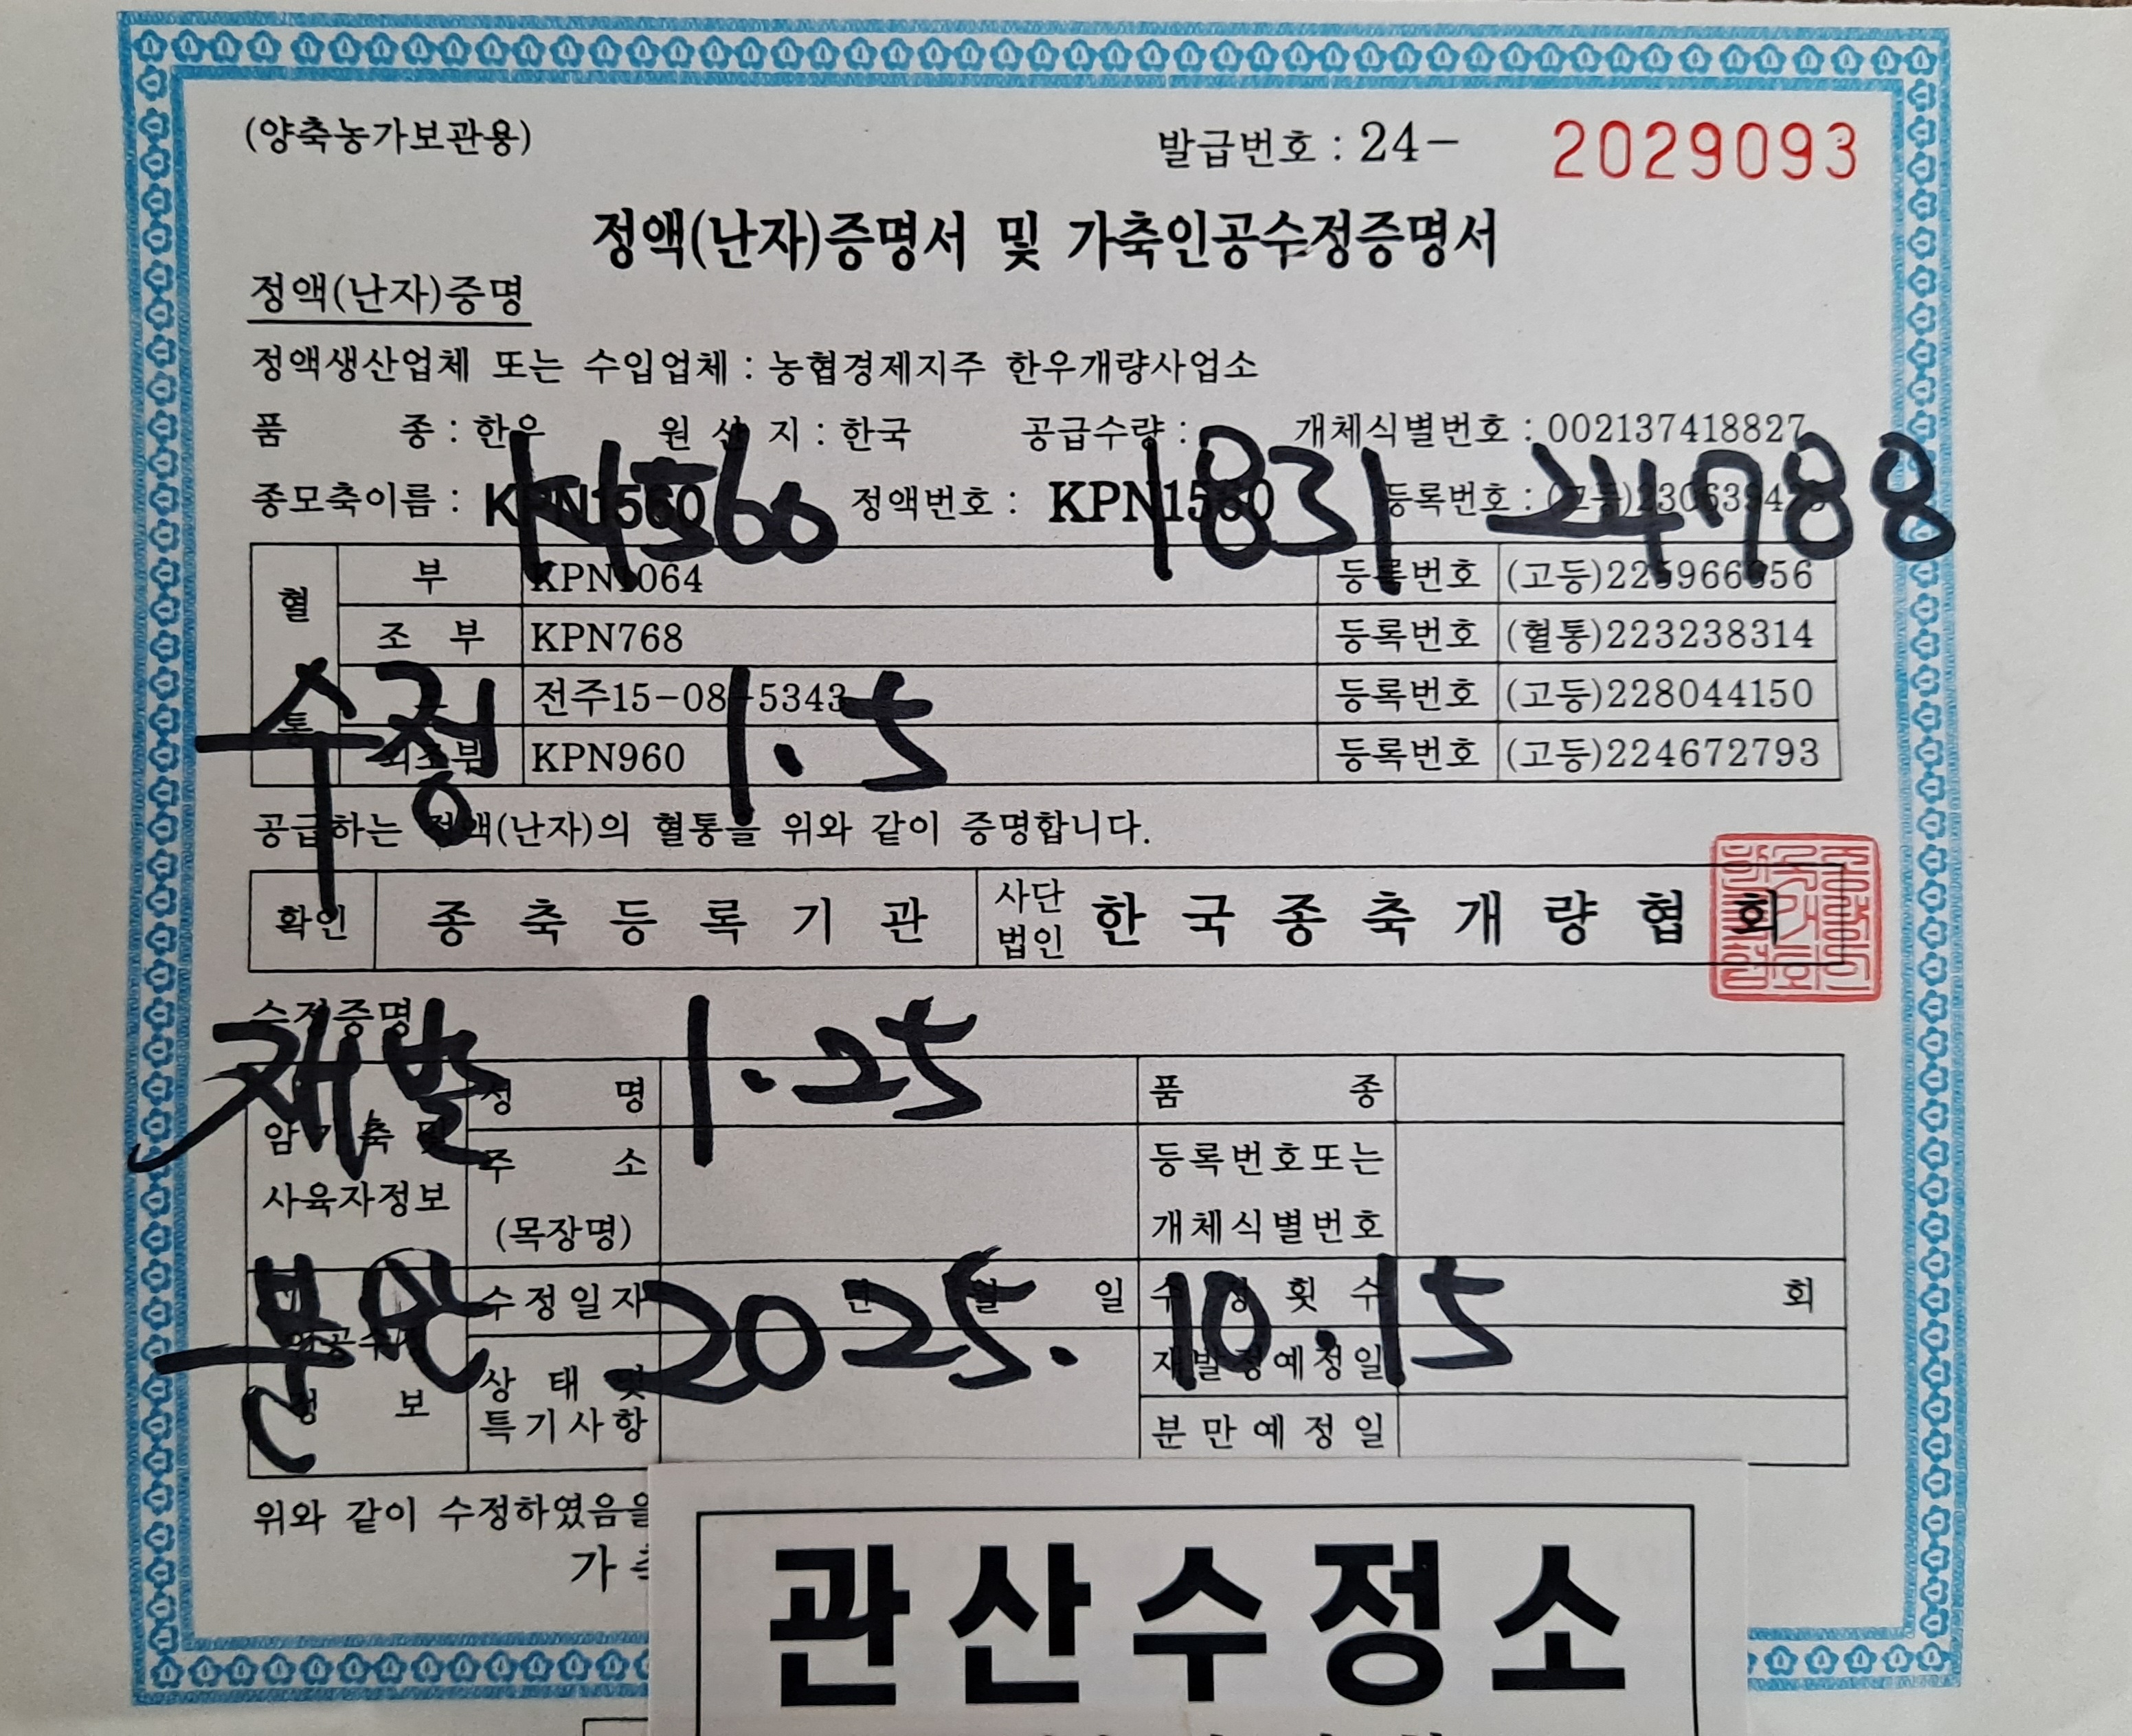 (양축농가보관용) 발급번호 : 24- 2029093
정액(난자)증명서 및 가축인공수정증명서
정액(난자)증명
정액생산업체 또는 수입업체 : 농협경제지주 한우개량사업소
품 종 : 한우 원 산 지 : 한국 공급수량 : 개체식별번호 : 002137418827
1831 24788
종모축이름 : KPN1560 정액번호 : KPN1560 등록번호 :
혈통 부 KPN1064 등록번호 (고등)
조 부 KPN768 등록번호 (혈통)223238314
전주15-08-5343 등록번호 (고등)228044150
외조부 KPN960 등록번호 (고등)224672793
수정 1.5
공급하는 정액(난자)의 혈통을 위와 같이 증명합니다.
확인 종축등록기관 사단법인 한국종축개량협회
수정증명
재발 1.25
암가축 및 사육자정보 성 명 품 종
주 소 (목장명) 등록번호또는 개체식별번호
분만 2025. 10.15
인공수정 정 보 수정일자 년 월 일 수정횟수 회
상태 및 특기사항 재발정예정일
분만예정일
위와 같이 수정하였음을
가
관산수정소